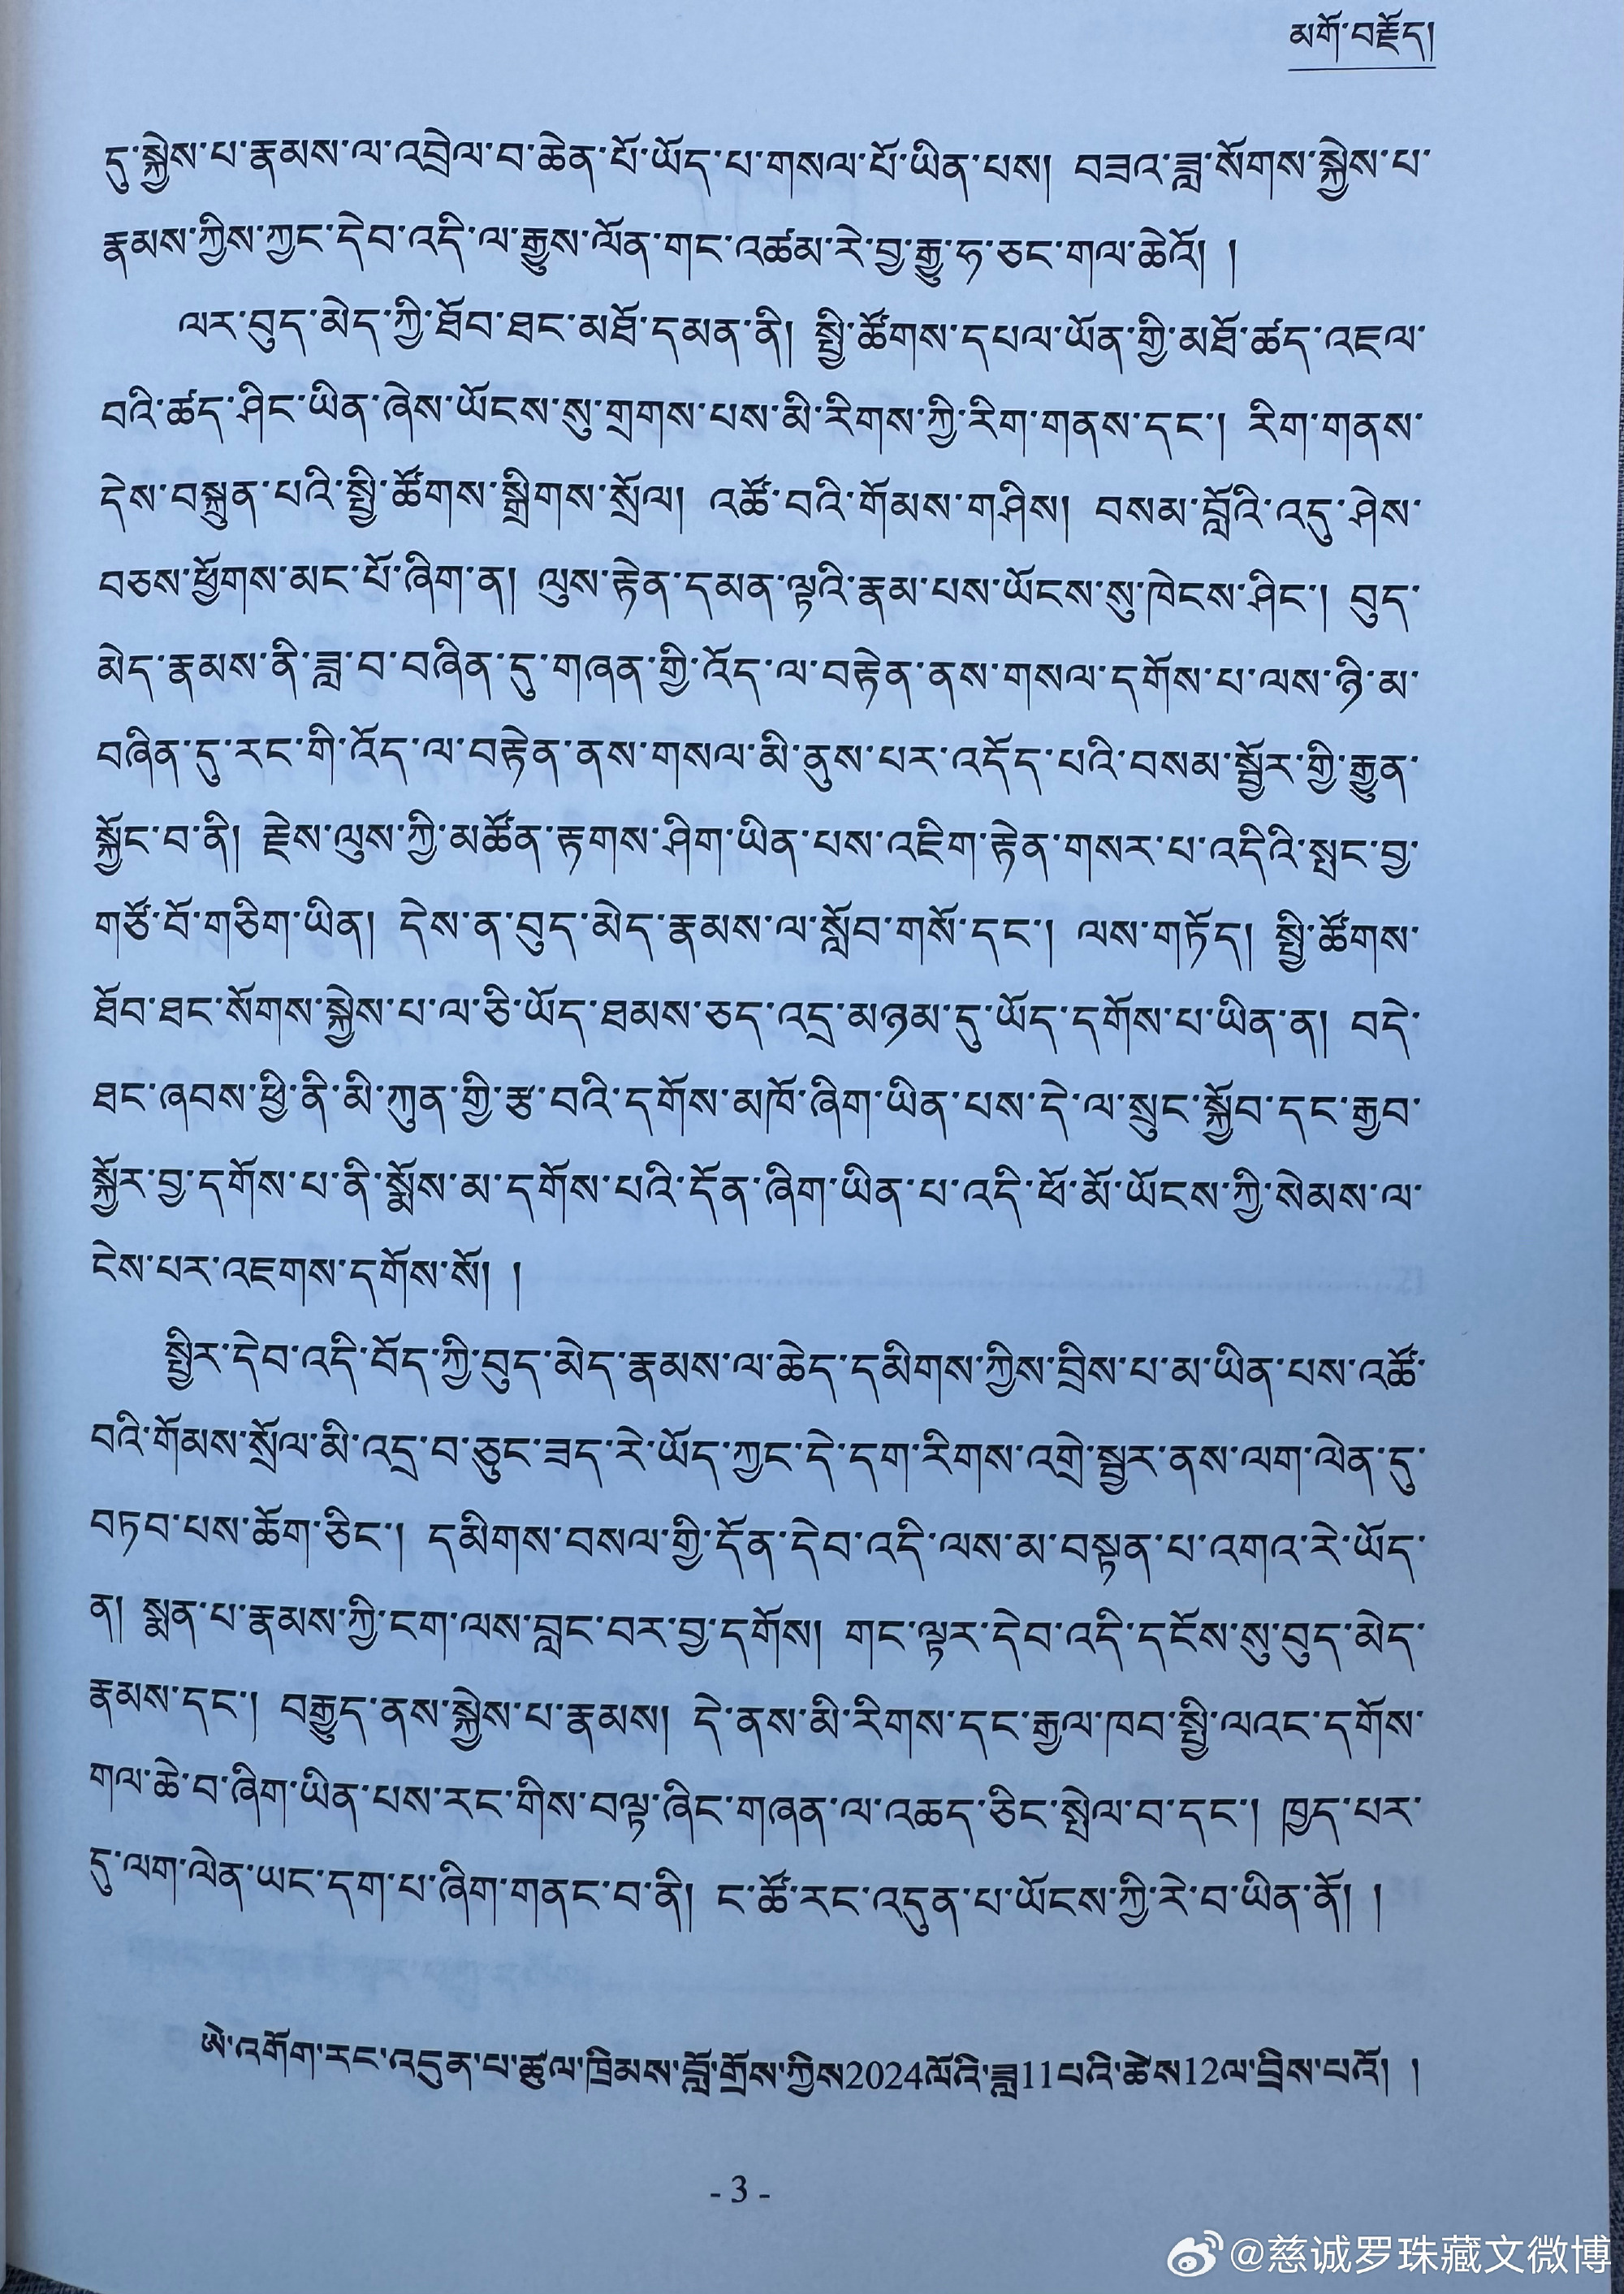 མགོ་བརྗོད།
དུ་སྐྱེས་པ་རྣམས་ལ་འབྲེལ་བ་ཆེན་པོ་ཡོད་པ་གསལ་པོ་ཡིན་པས། བཟའ་ཟླ་སོགས་སྐྱེས་པ་
རྣམས་ཀྱིས་ཀྱང་དེབ་འདི་ལ་རྒྱུས་ལོན་གང་འཚམ་རེ་བྱ་རྒྱུ་ཧ་ཅང་གལ་ཆེའོ། །
ལར་བུད་མེད་ཀྱི་ཐོབ་ཐང་མཐོ་དམན་ནི། སྤྱི་ཚོགས་དཔལ་ཡོན་གྱི་མཐོ་ཚད་འཇལ་
བའི་ཚད་ཤིང་ཡིན་ཞེས་ཡོངས་སུ་གྲགས་པས་མི་རིགས་ཀྱི་རིག་གནས་དང་། རིག་གནས་
དེས་བསྐྲུན་པའི་སྤྱི་ཚོགས་སྒྲིགས་སྲོལ། འཚོ་བའི་གོམས་གཤིས། བསམ་བློའི་འདུ་ཤེས་
བཅས་ཕྱོགས་མང་པོ་ཞིག་ན། ལུས་རྟེན་དམན་ལྟའི་རྣམ་པས་ཡོངས་སུ་ཁེངས་ཤིང་། བུད་
མེད་རྣམས་ནི་ཟླ་བ་བཞིན་དུ་གཞན་གྱི་འོད་ལ་བརྟེན་ནས་གསལ་དགོས་པ་ལས་ཉི་མ་
བཞིན་དུ་རང་གི་འོད་ལ་བརྟེན་ནས་གསལ་མི་ནུས་པར་འདོད་པའི་བསམ་སྦྱོར་གྱི་རྒྱུན་
སྐྱོང་བ་ནི། རྗེས་ལུས་ཀྱི་མཚོན་རྟགས་ཤིག་ཡིན་པས་འཇིག་རྟེན་གསར་པ་འདིའི་སྤང་བྱ་
གཙོ་བོ་གཅིག་ཡིན། དེས་ན་བུད་མེད་རྣམས་ལ་སློབ་གསོ་དང་། ལས་གཏོད། སྤྱི་ཚོགས་
ཐོབ་ཐང་སོགས་སྐྱེས་པ་ལ་ཅི་ཡོད་ཐམས་ཅད་འདྲ་མཉམ་དུ་ཡོད་དགོས་པ་ཡིན་ན། བདེ་
ཐང་ཞབས་ཕྱི་ནི་མི་ཀུན་གྱི་རྩ་བའི་དགོས་མཁོ་ཞིག་ཡིན་པས་དེ་ལ་སྲུང་སྐྱོབ་དང་རྒྱབ་
སྐྱོར་བྱ་དགོས་པ་ནི་སྨོས་མ་དགོས་པའི་དོན་ཞིག་ཡིན་པ་འདི་ཕོ་མོ་ཡོངས་ཀྱི་སེམས་ལ་
ངེས་པར་འཇགས་དགོས་སོ། །
སྤྱིར་དེབ་འདི་བོད་ཀྱི་བུད་མེད་རྣམས་ལ་ཆེད་དམིགས་ཀྱིས་བྲིས་པ་མ་ཡིན་པས་འཚོ་
བའི་གོམས་སྲོལ་མི་འདྲ་བ་ཅུང་ཟད་རེ་ཡོད་ཀྱང་དེ་དག་རིགས་འགྲེ་སྦྱར་ནས་ལག་ལེན་དུ་
བཏབ་པས་ཆོག་ཅིང་། དམིགས་བསལ་གྱི་དོན་དེབ་འདི་ལས་མ་བསྟན་པ་འགའ་རེ་ཡོད་
ན། སྨན་པ་རྣམས་ཀྱི་ངག་ལས་བླང་བར་བྱ་དགོས། གང་ལྟར་དེབ་འདི་དངོས་སུ་བུད་མེད་
རྣམས་དང་། བརྒྱུད་ནས་སྐྱེས་པ་རྣམས། དེ་ནས་མི་རིགས་དང་རྒྱལ་ཁབ་སྤྱི་ལའང་དགོས་
གལ་ཆེ་བ་ཞིག་ཡིན་པས་རང་གིས་བལྟ་ཞིང་གཞན་ལ་འཆད་ཅིང་སྤེལ་བ་དང་། ཁྱད་པར་
དུ་ལག་ལེན་ཡང་དག་པ་ཞིག་གནང་བ་ནི། ང་ཚོ་རང་འདུན་པ་ཡོངས་ཀྱི་རེ་བ་ཡིན་ནོ། །
ཨེ་འགོག་རང་འདུན་པ་ཚུལ་ཁྲིམས་བློ་གྲོས་ཀྱིས2024ལོའི་ཟླ11པའི་ཚེས12ལ་བྲིས་པའོ། །
- 3 -
@慈诚罗珠藏文微博